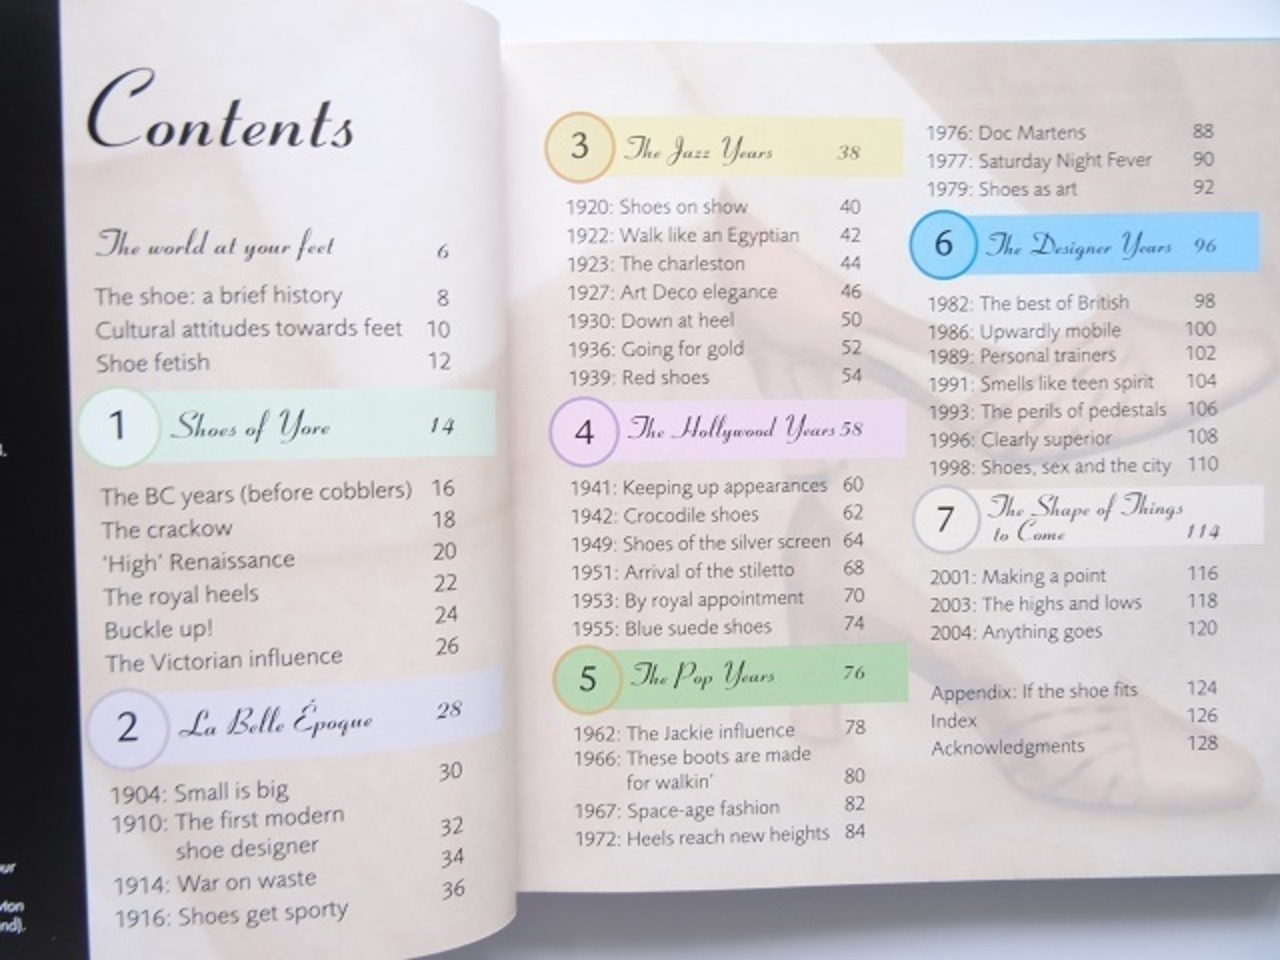 Contents
The world at your feet 6
The shoe: a brief history 8
Cultural attitudes towards feet 10
Shoe fetish 12
1 Shoes of Yore 14
The BC years (before cobblers) 16
The crackow 18
'High' Renaissance 20
The royal heels 22
Buckle up! 24
The Victorian influence 26
2 La Belle Époque 28
1904: Small is big 30
1910: The first modern
shoe designer 32
1914: War on waste 34
1916: Shoes get sporty 36
3 The Jazz Years 38
1920: Shoes on show 40
1922: Walk like an Egyptian 42
1923: The charleston 44
1927: Art Deco elegance 46
1930: Down at heel 50
1936: Going for gold 52
1939: Red shoes 54
4 The Hollywood Years 58
1941: Keeping up appearances 60
1942: Crocodile shoes 62
1949: Shoes of the silver screen 64
1951: Arrival of the stiletto 68
1953: By royal appointment 70
1955: Blue suede shoes 74
5 The Pop Years 76
1962: The Jackie influence 78
1966: These boots are made
for walkin' 80
1967: Space-age fashion 82
1972: Heels reach new heights 84
1976: Doc Martens 88
1977: Saturday Night Fever 90
1979: Shoes as art 92
6 The Designer Years 96
1982: The best of British 98
1986: Upwardly mobile 100
1989: Personal trainers 102
1991: Smells like teen spirit 104
1993: The perils of pedestals 106
1996: Clearly superior 108
1998: Shoes, sex and the city 110
7 The Shape of Things
to Come 114
2001: Making a point 116
2003: The highs and lows 118
2004: Anything goes 120
Appendix: If the shoe fits 124
Index 126
Acknowledgments 128